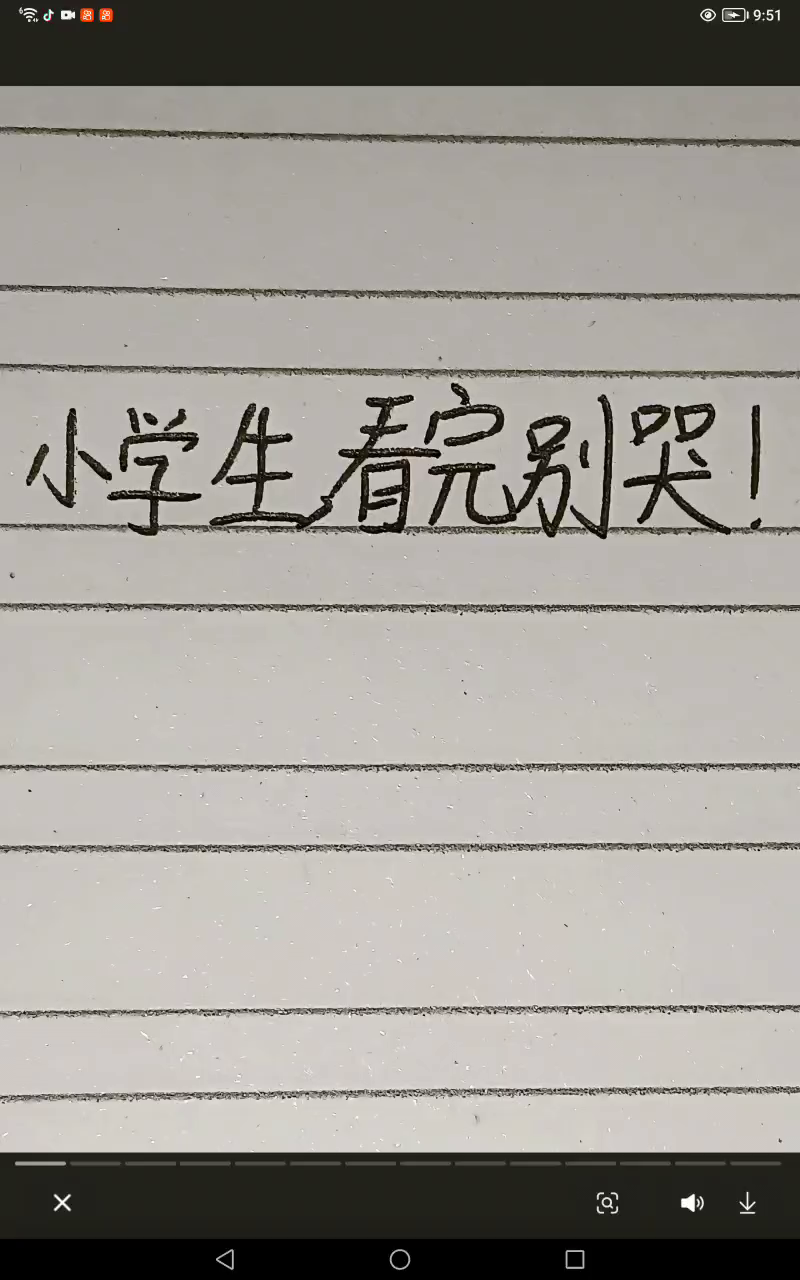 9:51
小学生看完别哭！